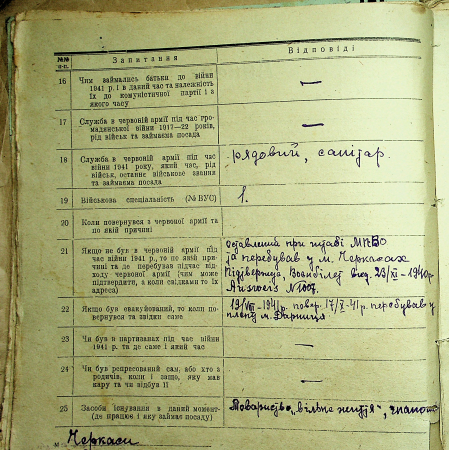 №№ п.п.
Запитання
Відповіді
16
Чим займались батьки до війни
1941 р. і в даний час та належність
їх до комуністичної партії і з
якого часу
—
17
Служба в червоній армії під час гро-
мадянської війни 1917—22 років,
рід військ та займаема посада
—
18
Служба в червоній армії під час
війни 1941 року, який час, рід
військ, останнє військове звання
та займаема посада
рядовий, санітар.
19
Військова спеціальність (№ ВУС)
1.
20
Коли повернувся з червоної армії та
по якій причині
21
Якщо не був в червоній армії під
час війни 1941 р., то по якій при-
чині та де перебував підчас від-
ходу червоної армії (чим може
підтвердити, а коли свідками то їх
адреса)
при
та перебував у м. Черкасах
23/XI - 1940р
Ausweis N 1007.
22
Якщо був евакуйований, то коли по-
вернувся та звідки саме
19/VII - 1941р. повер. 17/X-41р. перебував у
м. Дарниця
23
Чи був в партизанах під час війни
1941 р. та де саме і який час
—
24
Чи був репресований сам, або хто з
родичів, коли і защо, яку мав
кару та чи відбув її
—
25
Засоби існування в даний момент
(де працює і яку займає посаду)
Товариство „вільне життя",
м Черкаси